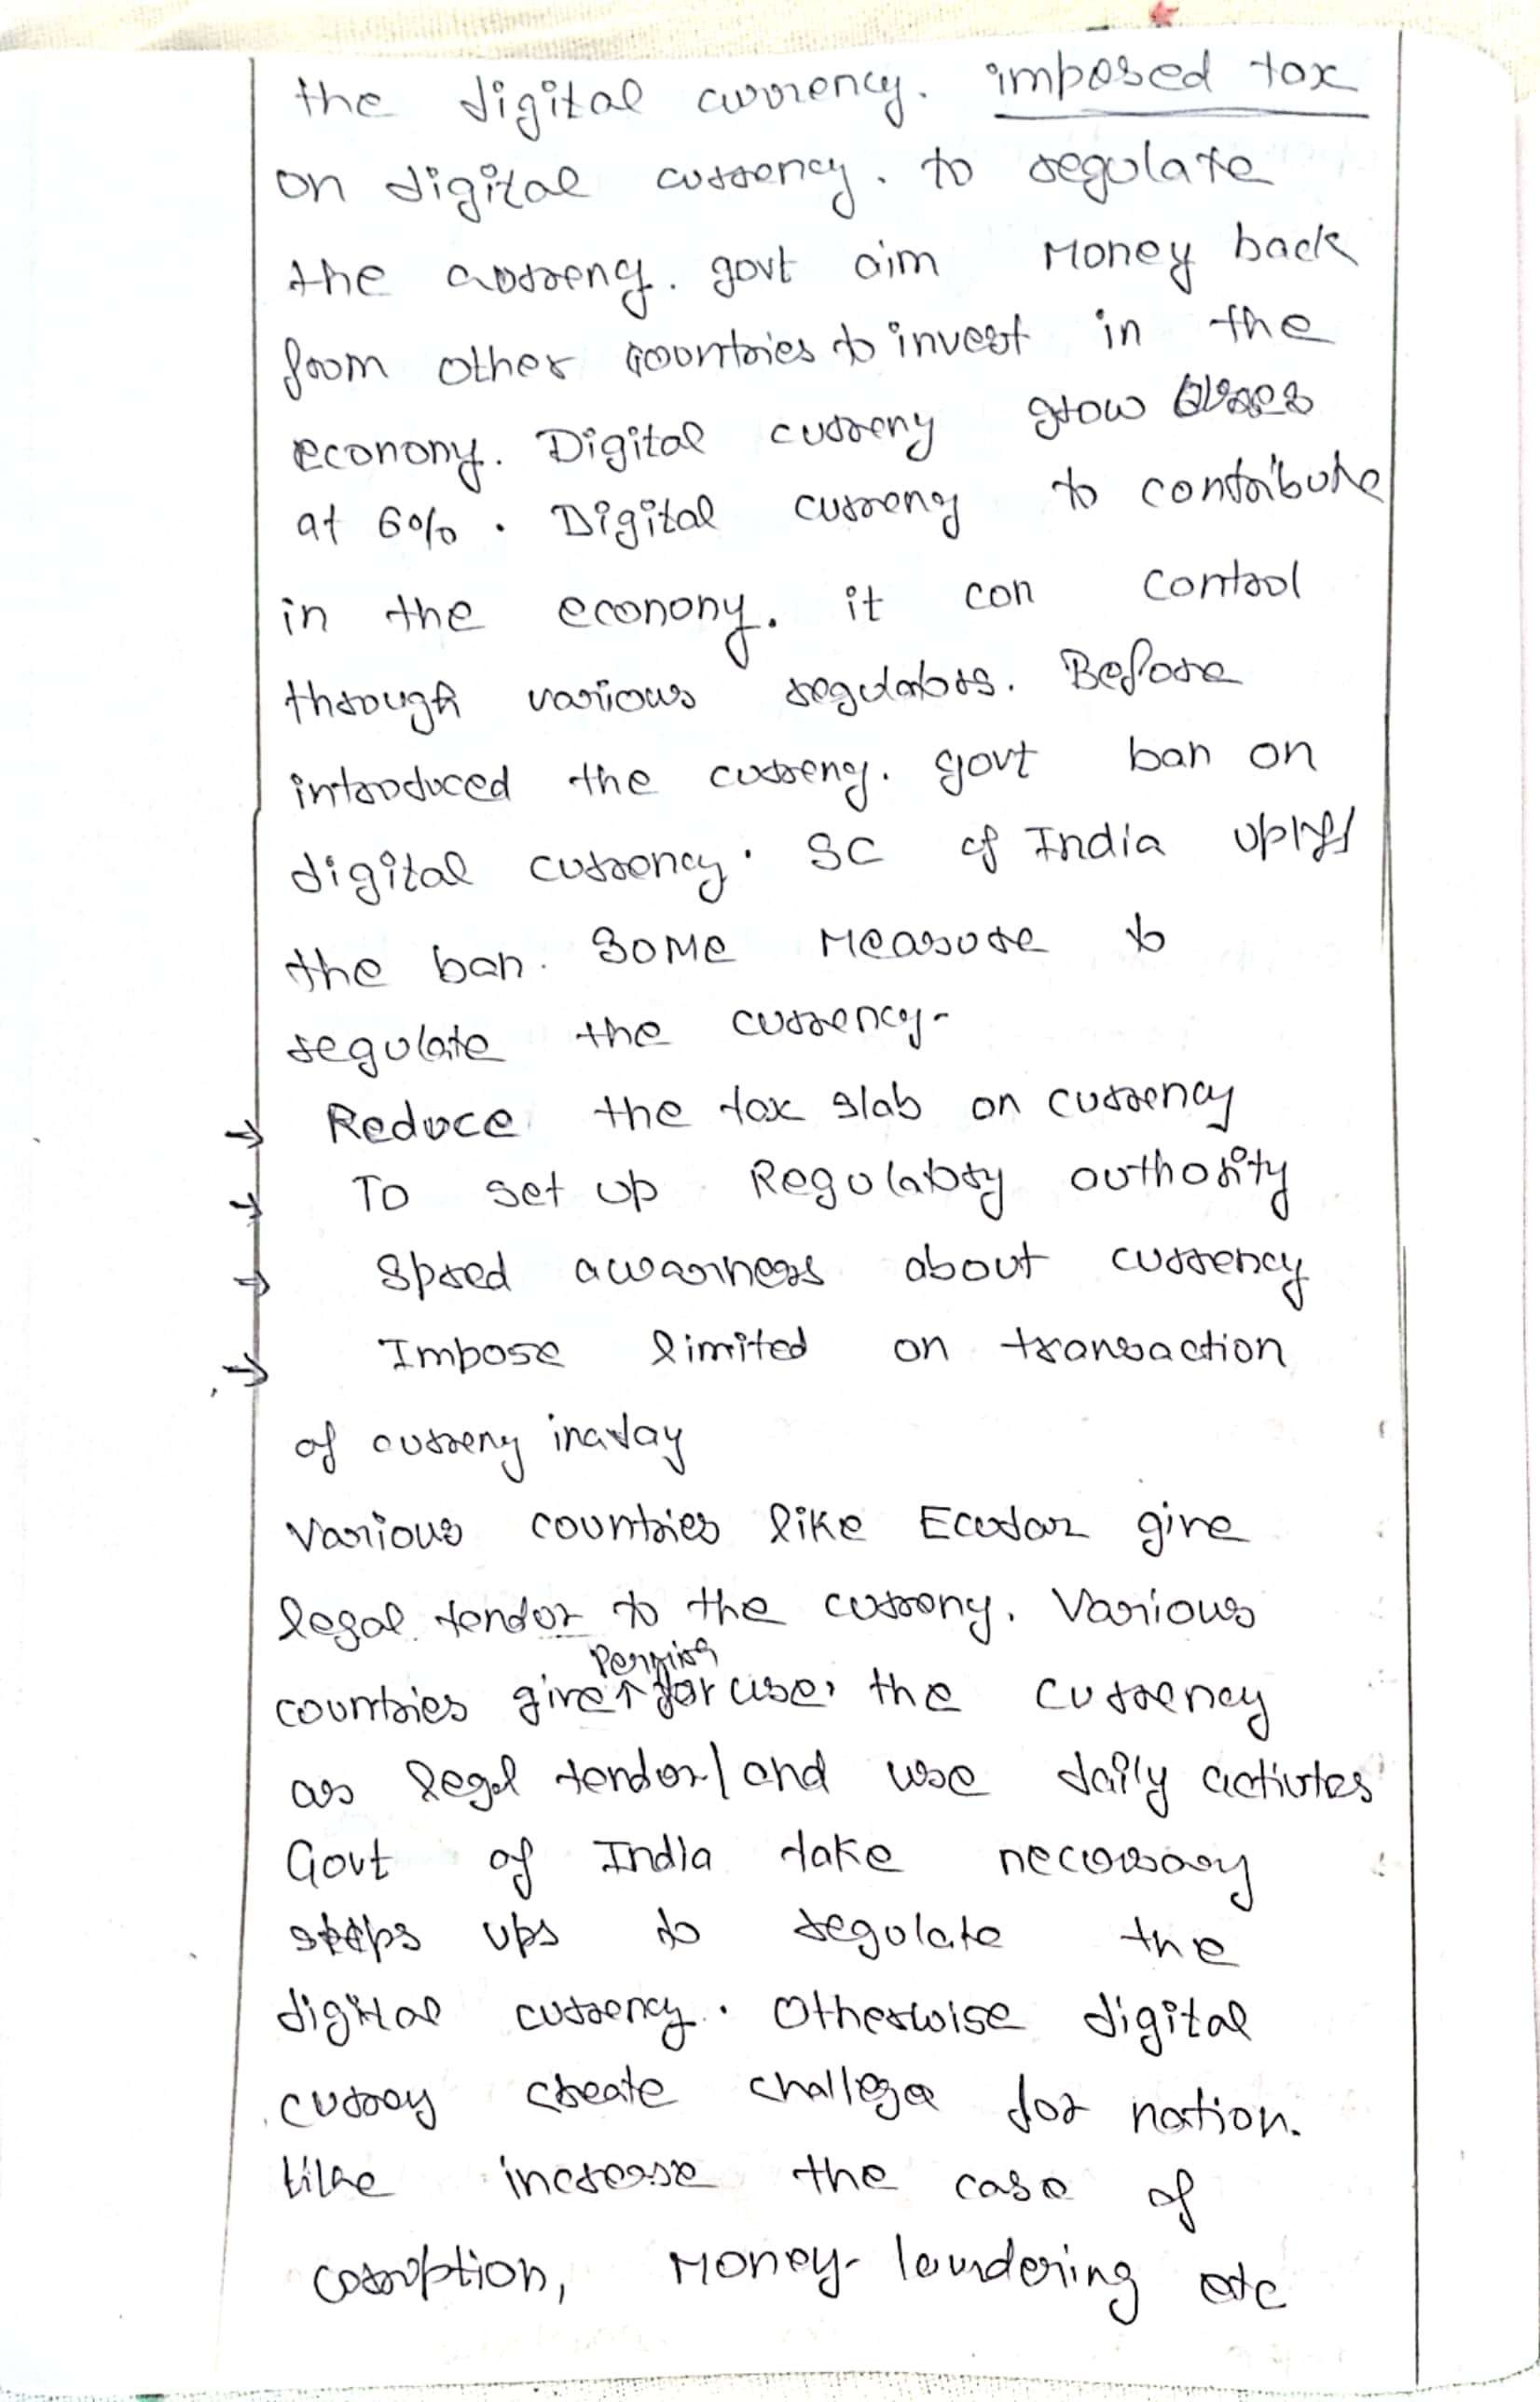 the digital currency. imposed tax
on digital currency. to regulate
the curreny. govt aim Money back
from other countries to invest in the
econony. Digital curreny grow
at 6%. Digital curreny to contribute
in the econony. it can control
through various regulators. Before
introduced the curreny. govt ban on
digital currency. SC of India uplift
the ban. Some Measure to
regulate the currency-
→ Reduce the tax slab on currency
→ To set up Regulatory authority
→ Spred awarness about currency
→ Impose limited on transaction
of curreny in a day
Various countries like Ecudar give
legal tender to the curreny. Various
countries give permision for use the currency
as legal tender/and use daily activites
Govt of India take necessary
steps ups to regulate the
digital currency. Otherwise digital
curroy create challege for nation.
like increase the case of
corruption, Money-laundering etc